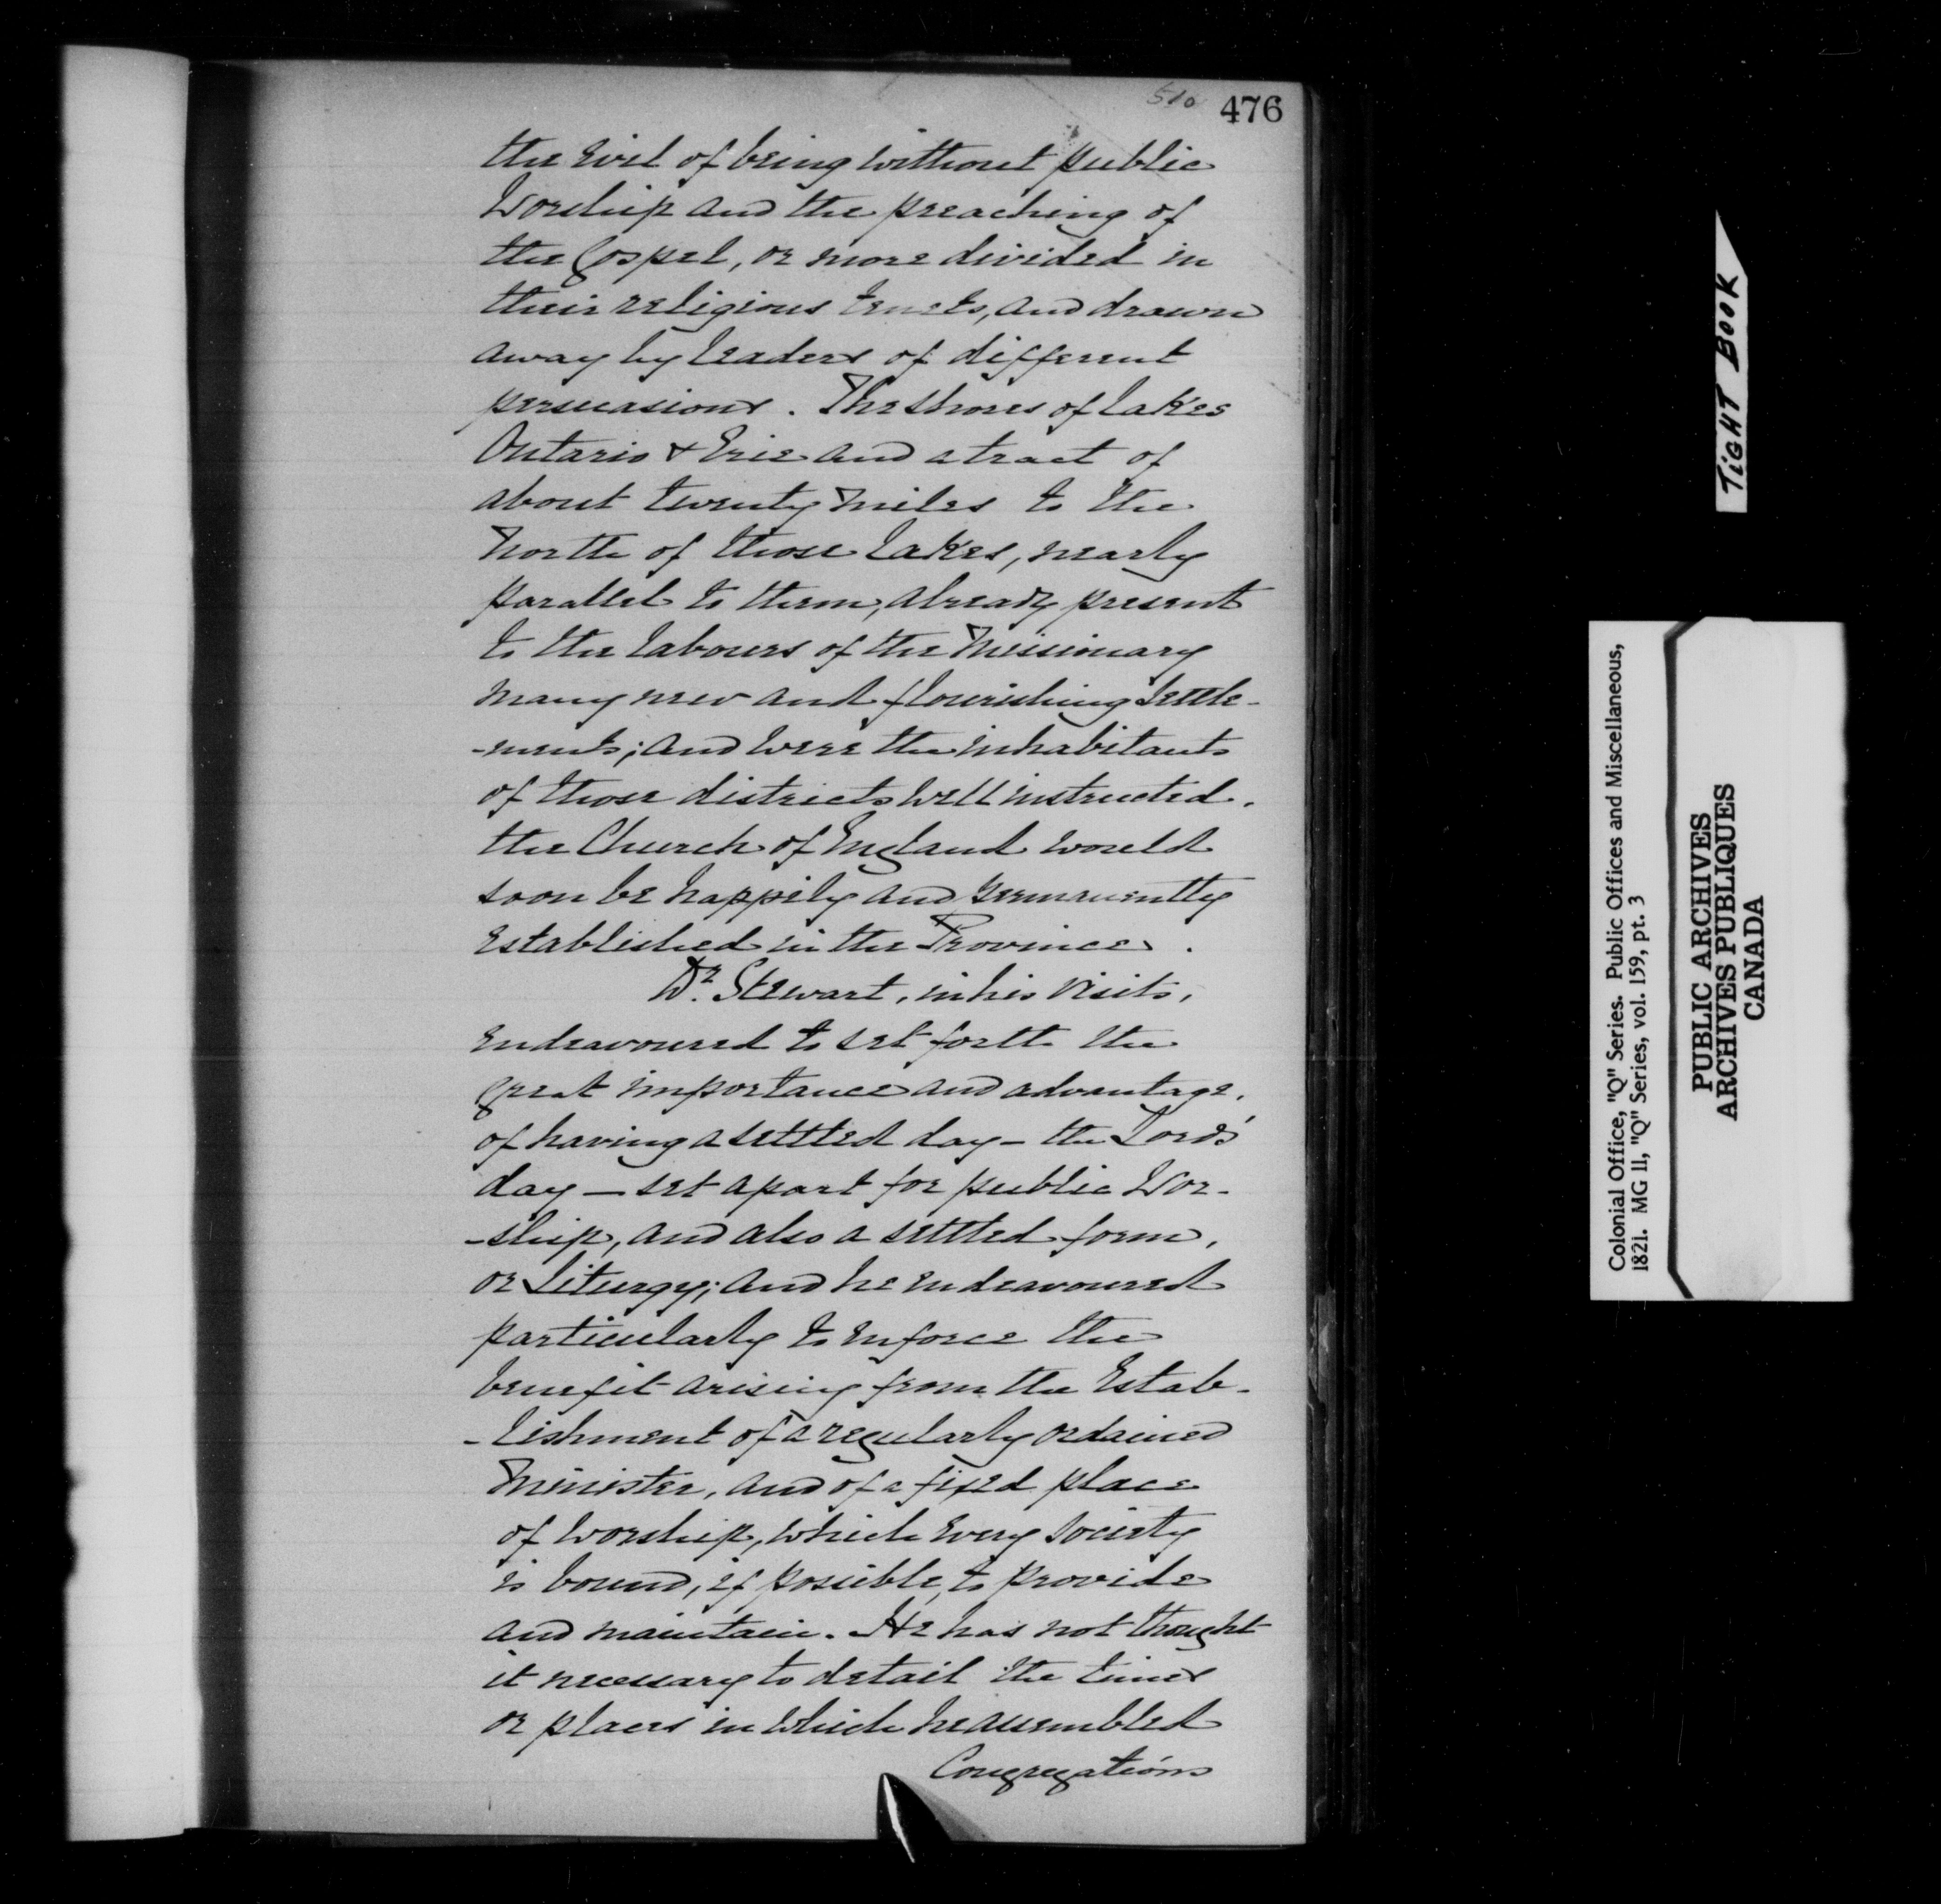 510 476
the evil of being without public
Worship and the preaching of
the Gospel, or more divided in
their religious tenets, and drawn
away by leaders of different
persuasions. The Shores of lakes
Ontario & Erie and a tract of
about twenty Miles to the
North of those lakes, nearly
parallel to them, already present
to the labours of the Missionary
many new and flourishing Settle-
-ments; and were the inhabitants
of those districts well instructed.
the Church of England would
soon be happily and permanently
established in the Province.
Dr. Stewart, in his visits,
endeavoured to set forth the
great importance and advantage,
of having a settled day – the Lord's
day – set apart for public Wor-
-ship, and also a settled form,
or Liturgy; and he endeavoured
particularly to enforce the
benefit arising from the Estab-
-lishment of a regularly ordained
Minister, and of a fixed place
of worship, which every Society
is bound, if possible, to provide
and maintain. He has not thought
it necessary to detail the times
or places in which he assembled
Congregations
TIGHT BOOK
Colonial Office, "Q" Series. Public Offices and Miscellaneous,
1821. MG 11, "Q" Series, vol. 159, pt. 3
PUBLIC ARCHIVES
ARCHIVES PUBLIQUES
CANADA